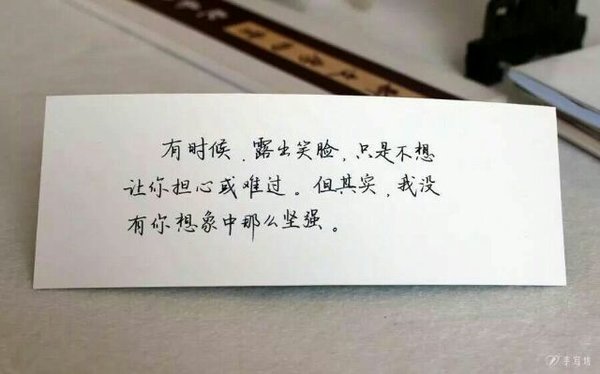 有时候，露出笑脸，只是不想
让你担心或难过。但其实，我没
有你想象中那么坚强。
手写坊